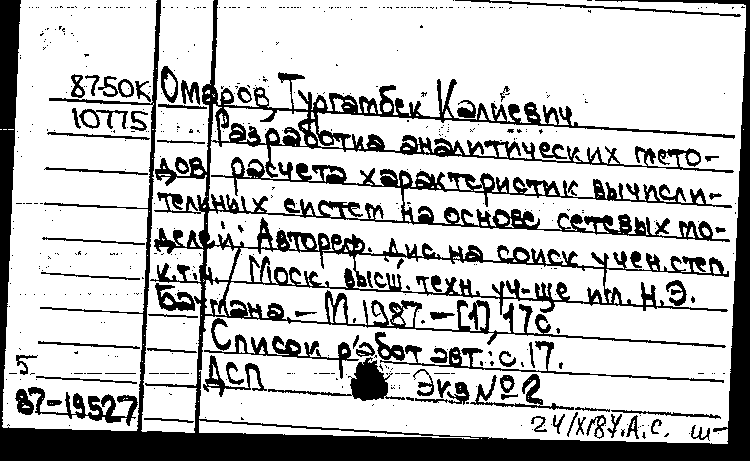 87-50К Омаров, Тургамбек Калиевич.
10775 Разработка аналитических мето-
дов расчета характеристик вычисли-
тельных систем на основе сетевых мо-
делей: Автореф. дис. на соиск. учен. степ.
к.т.н. / Моск. высш. техн. уч-ще им. Н.Э.
Баумана. – М. 1987. – [1], 17 с.
Список работ авт.: с. 17.
5
ДСП Экз № 2
87-19527
24/XI87. А.С. ш-